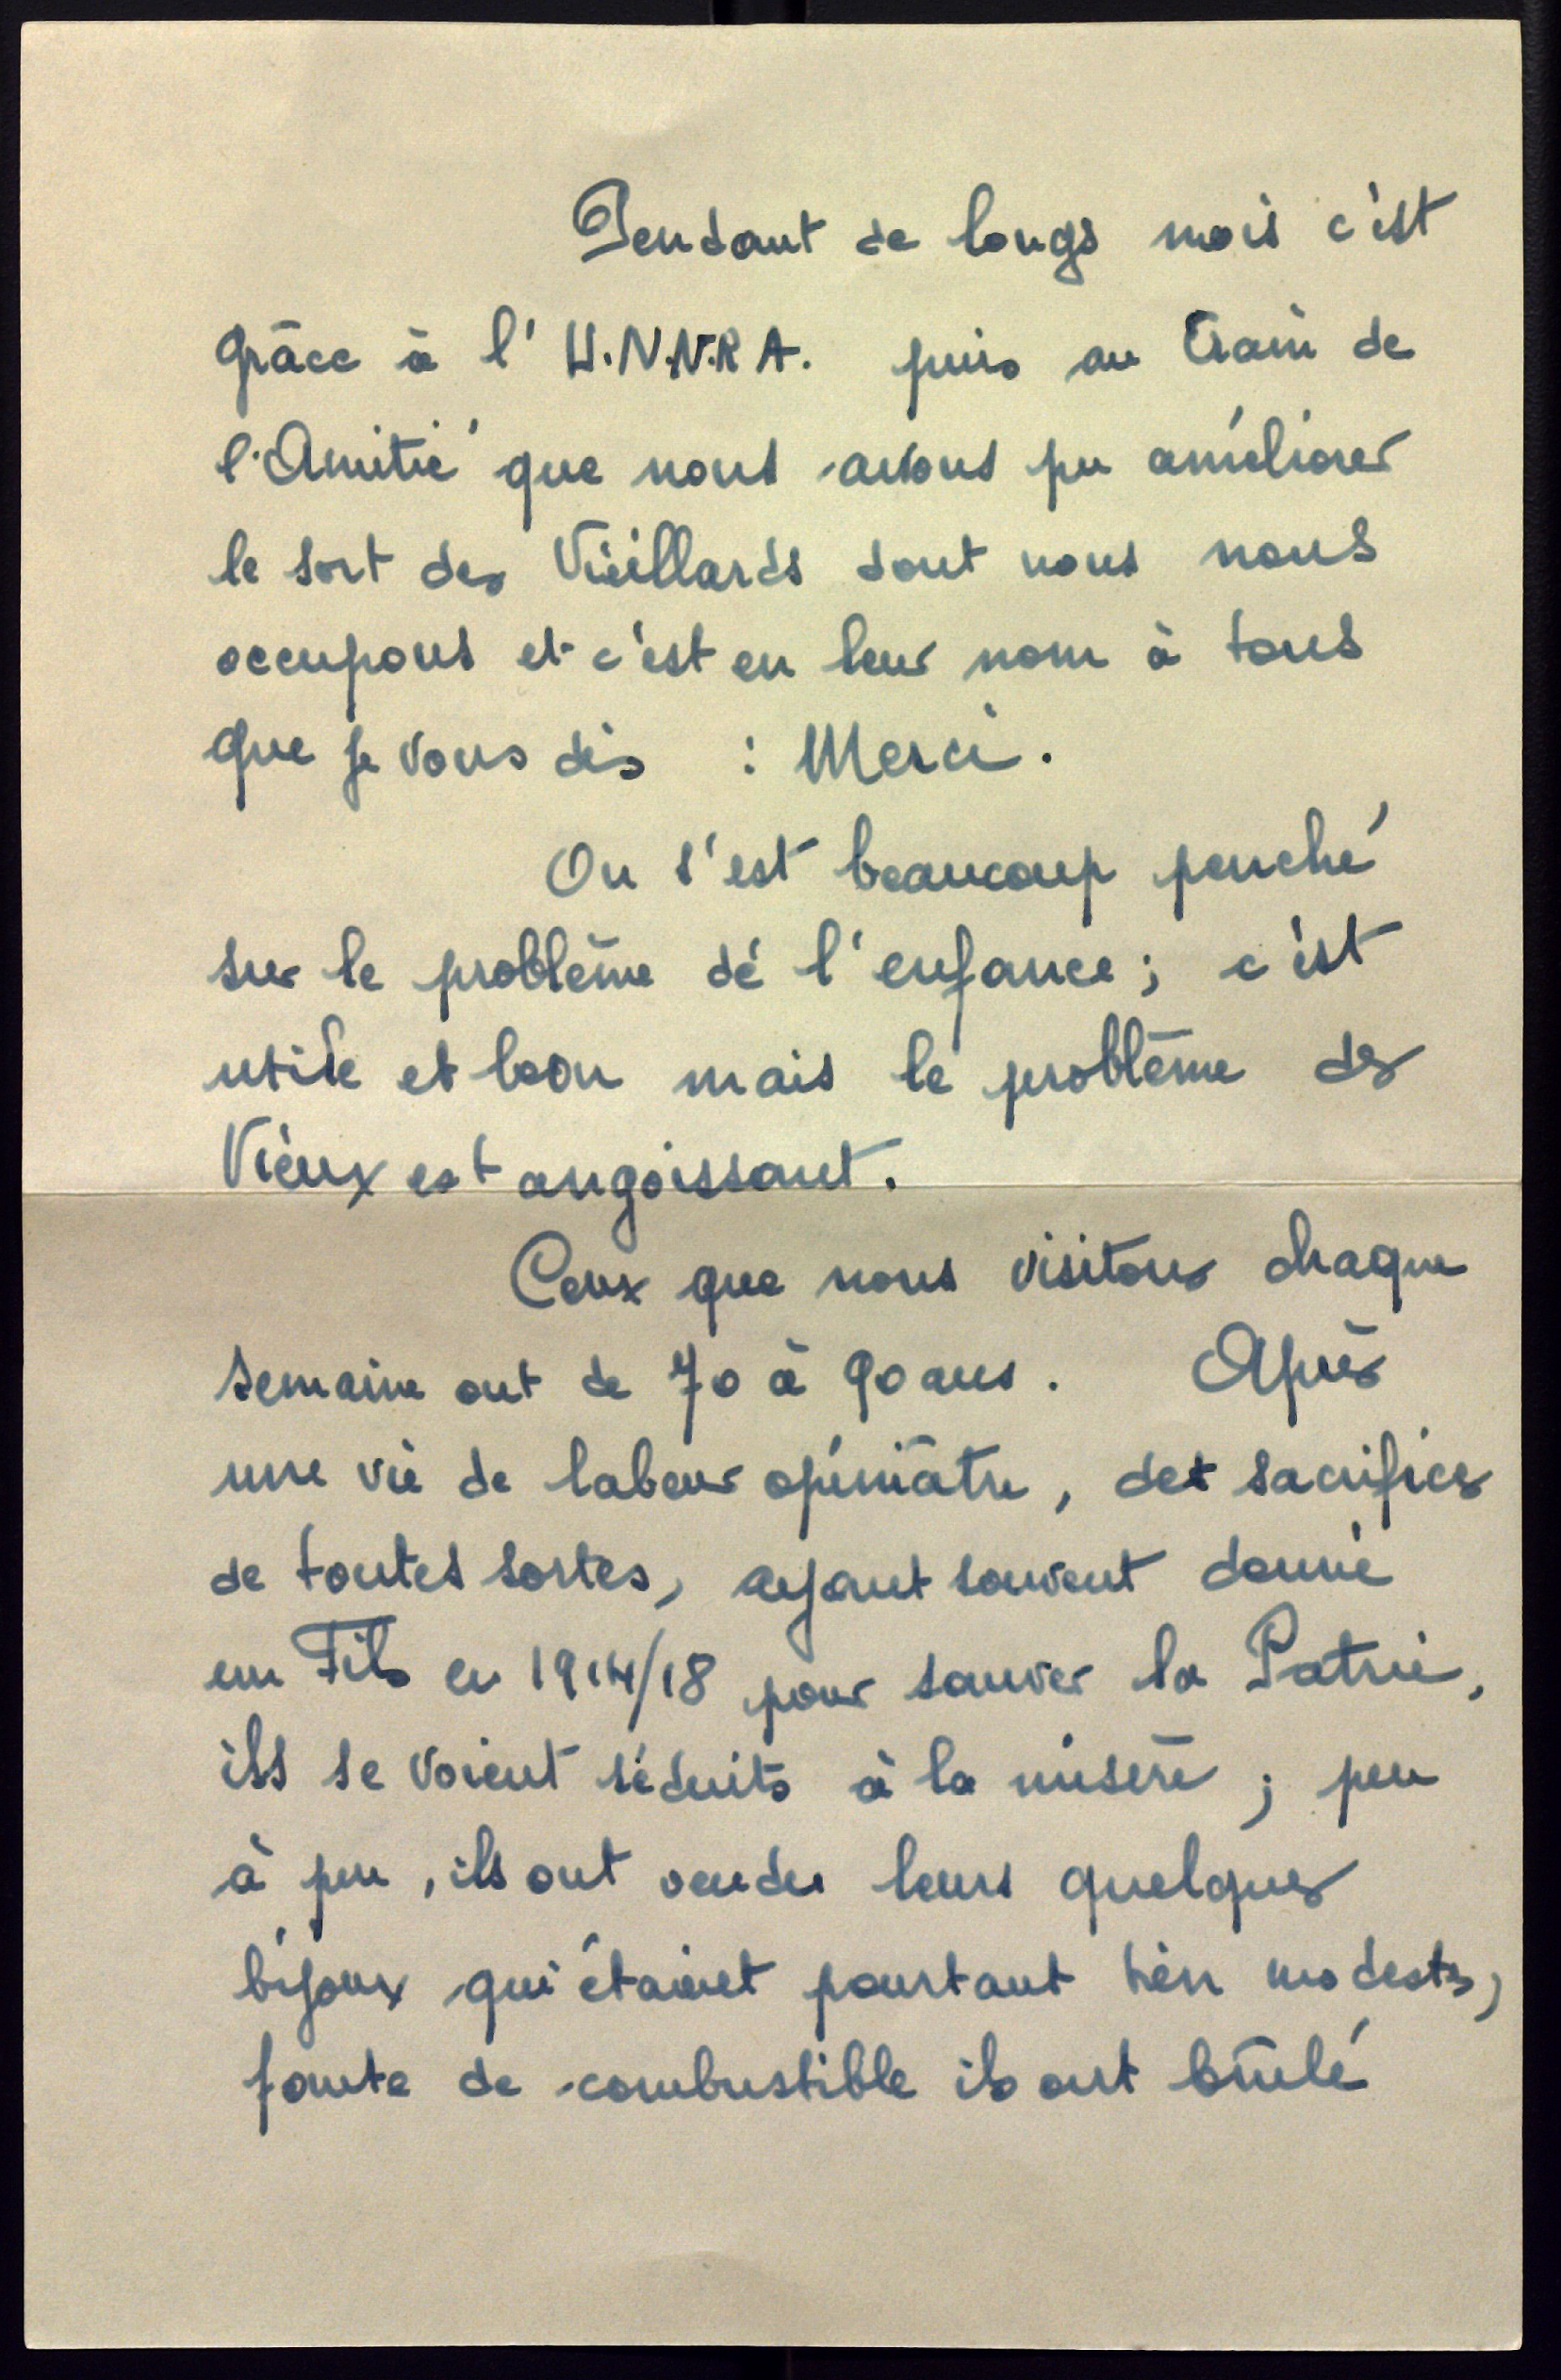 Pendant de longs mois c'est
grâce à l' U.N.N.R A. puis au Train de
l'Amitié que nous avons pu améliorer
le sort des Vieillards dont nous nous
occupons et c'est en leur nom à tous
que je vous dis : Merci.
On s'est beaucoup penché
sur le problème de l'enfance ; c'est
utile et bon mais le problème des
Vieux est angoissant.
Ceux que nous visitons chaque
semaine ont de 70 à 90 ans. Après
une vie de labeur opiniâtre, des sacrifices
de toutes sortes, ayant souvent donné
un Fils en 1914/18 pour sauver la Patrie,
ils se voient réduits à la misère ; peu
à peu, ils ont vendu leurs quelques
bijoux qui étaient pourtant bien modestes,
faute de combustible ils ont brûlé